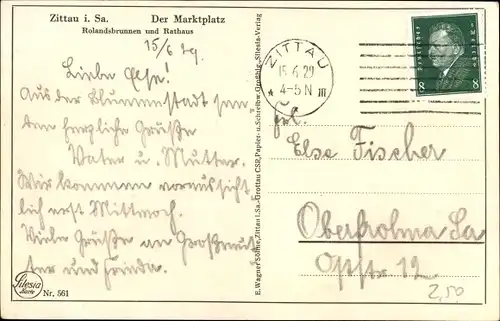 Zittau i. Sa. Der Marktplatz
Rolandsbrunnen und Rathaus
15/6 29.
Liebe Else!
Aus der Blumenstadt sen-
den herzliche Grüße
Vater u. Mutter.
Wir kommen voraussicht-
lich erst Mittwoch.
Viele Grüße an Großmut-
ter und Frieda.
Silesia
Karte
Nr. 561
E. Wagner Söhne, Zittau i. Sa.-Grottau CSR, Papier- u. Schreibw. Großhdlg., Silesia-Verlag
ZITTAU
15.6.29
* 4-5 N III
Deutsches Reich
8 8
Frl.
Else Fischer
Oberfrohna Sa
Opfstr 12
2,50